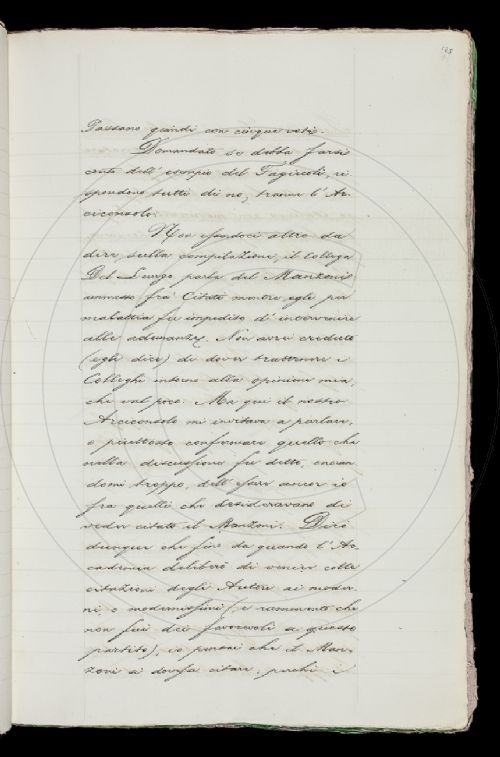 125
Passano quindi con cinque voti.
Domandato se debba farsi
conto dell' esempio del Fagiuoli, ri
spondono tutti di no, tranne l' Ar
ciconsolo.
Non essendoci altro da
dire sulla compilazione, il Collega
Del Lungo parla del Manzoni
ammesso fra' Citati mentre egli per
malattia fu impedito d' intervenire
alle adunanze. Non avrei creduto
(egli dice) di dover trattenere i
Colleghi intorno alla opinione mia,
che val poco. Ma qui il nostro
Arciconsolo mi invitava a parlare,
o piuttosto confermare quello che
nella discussione fu detto, onoran
domi troppo, dell' esser ancor io
fra quelli che desideravano di
veder citato il Manzoni. Dirò
dunque che fino da quando l' Ac
cademia deliberò di venire colle
citazioni degli Autori ai moder
ni o modernissimi (e rammento che
non fui dei favorevoli a questo
partito), io pensai che il Man
zoni si dovesse citare, perchè i